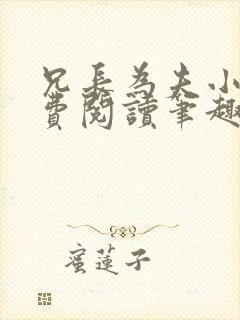 兄長為夫小
費閱讀筆趣
蜜蓮子